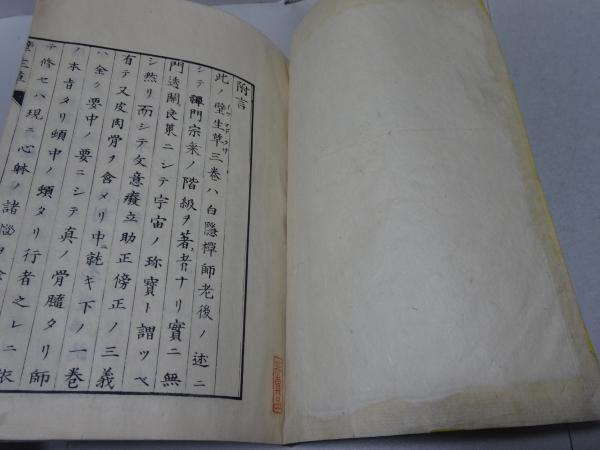 附言
此ノ壁生草三卷ハ白隱禪師老後ノ述ニ
シテ禪門宗乘ノ階級ヲ著者ナリ實ニ無
門透關良策ニシテ宇宙ノ珍寶ト謂ツベ
シ然リ而シテ文意癈立助正傍正ノ三義
有テ又皮肉骨ヲ含メリ中就キ下ノ一巻
ハ全ク要中ノ要ニシテ真ノ骨髓タリ師
ノ本旨タリ頌中ノ頌タリ行者之レニ依
テ修セハ現ニ心躰ノ諸惱ヲ